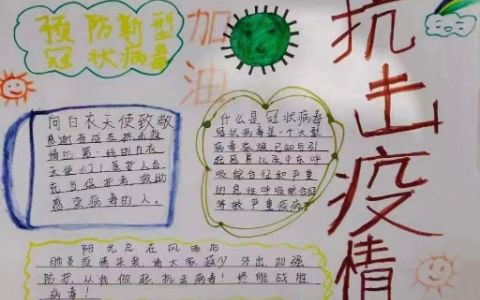 预防新型
冠状病毒
加
油
抗
击
疫
情
向白衣天使致敬
感谢有
情的第一线的白衣
天使们！愿
救助
感染病毒的人。
什么是冠状病毒
冠状病毒是一个大型
病毒家族，已知可引
起感冒以及中东呼
吸综合征和严重
的急性呼吸综合征
等较严重疾病。
阳光总在风雨后
肺炎疫情来袭，请大家减少外出，加强
防护，从我做起，抗击病毒！终能战胜
病毒！